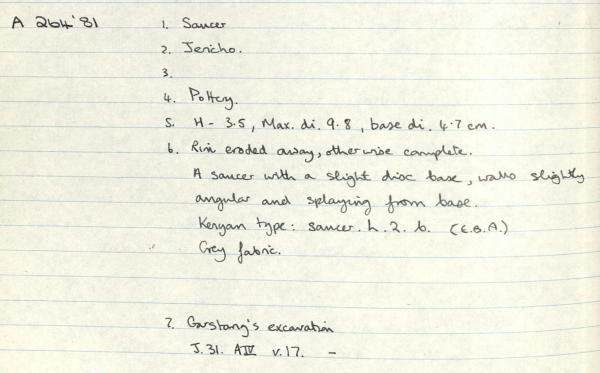 A 264'81
1. Saucer
2. Jericho.
3.
4. Pottery.
5. H - 3.5, Max. di. 9.8, base di. 4.7 cm.
6. Rim eroded away, otherwise complete.
A saucer with a slight disc base, walls slightly
angular and splaying from base.
Kenyan type: saucer. h. 2. b. (E.B.A.)
Grey fabric.
7. Garstang's excavation
J. 31. AIV v. 17. -